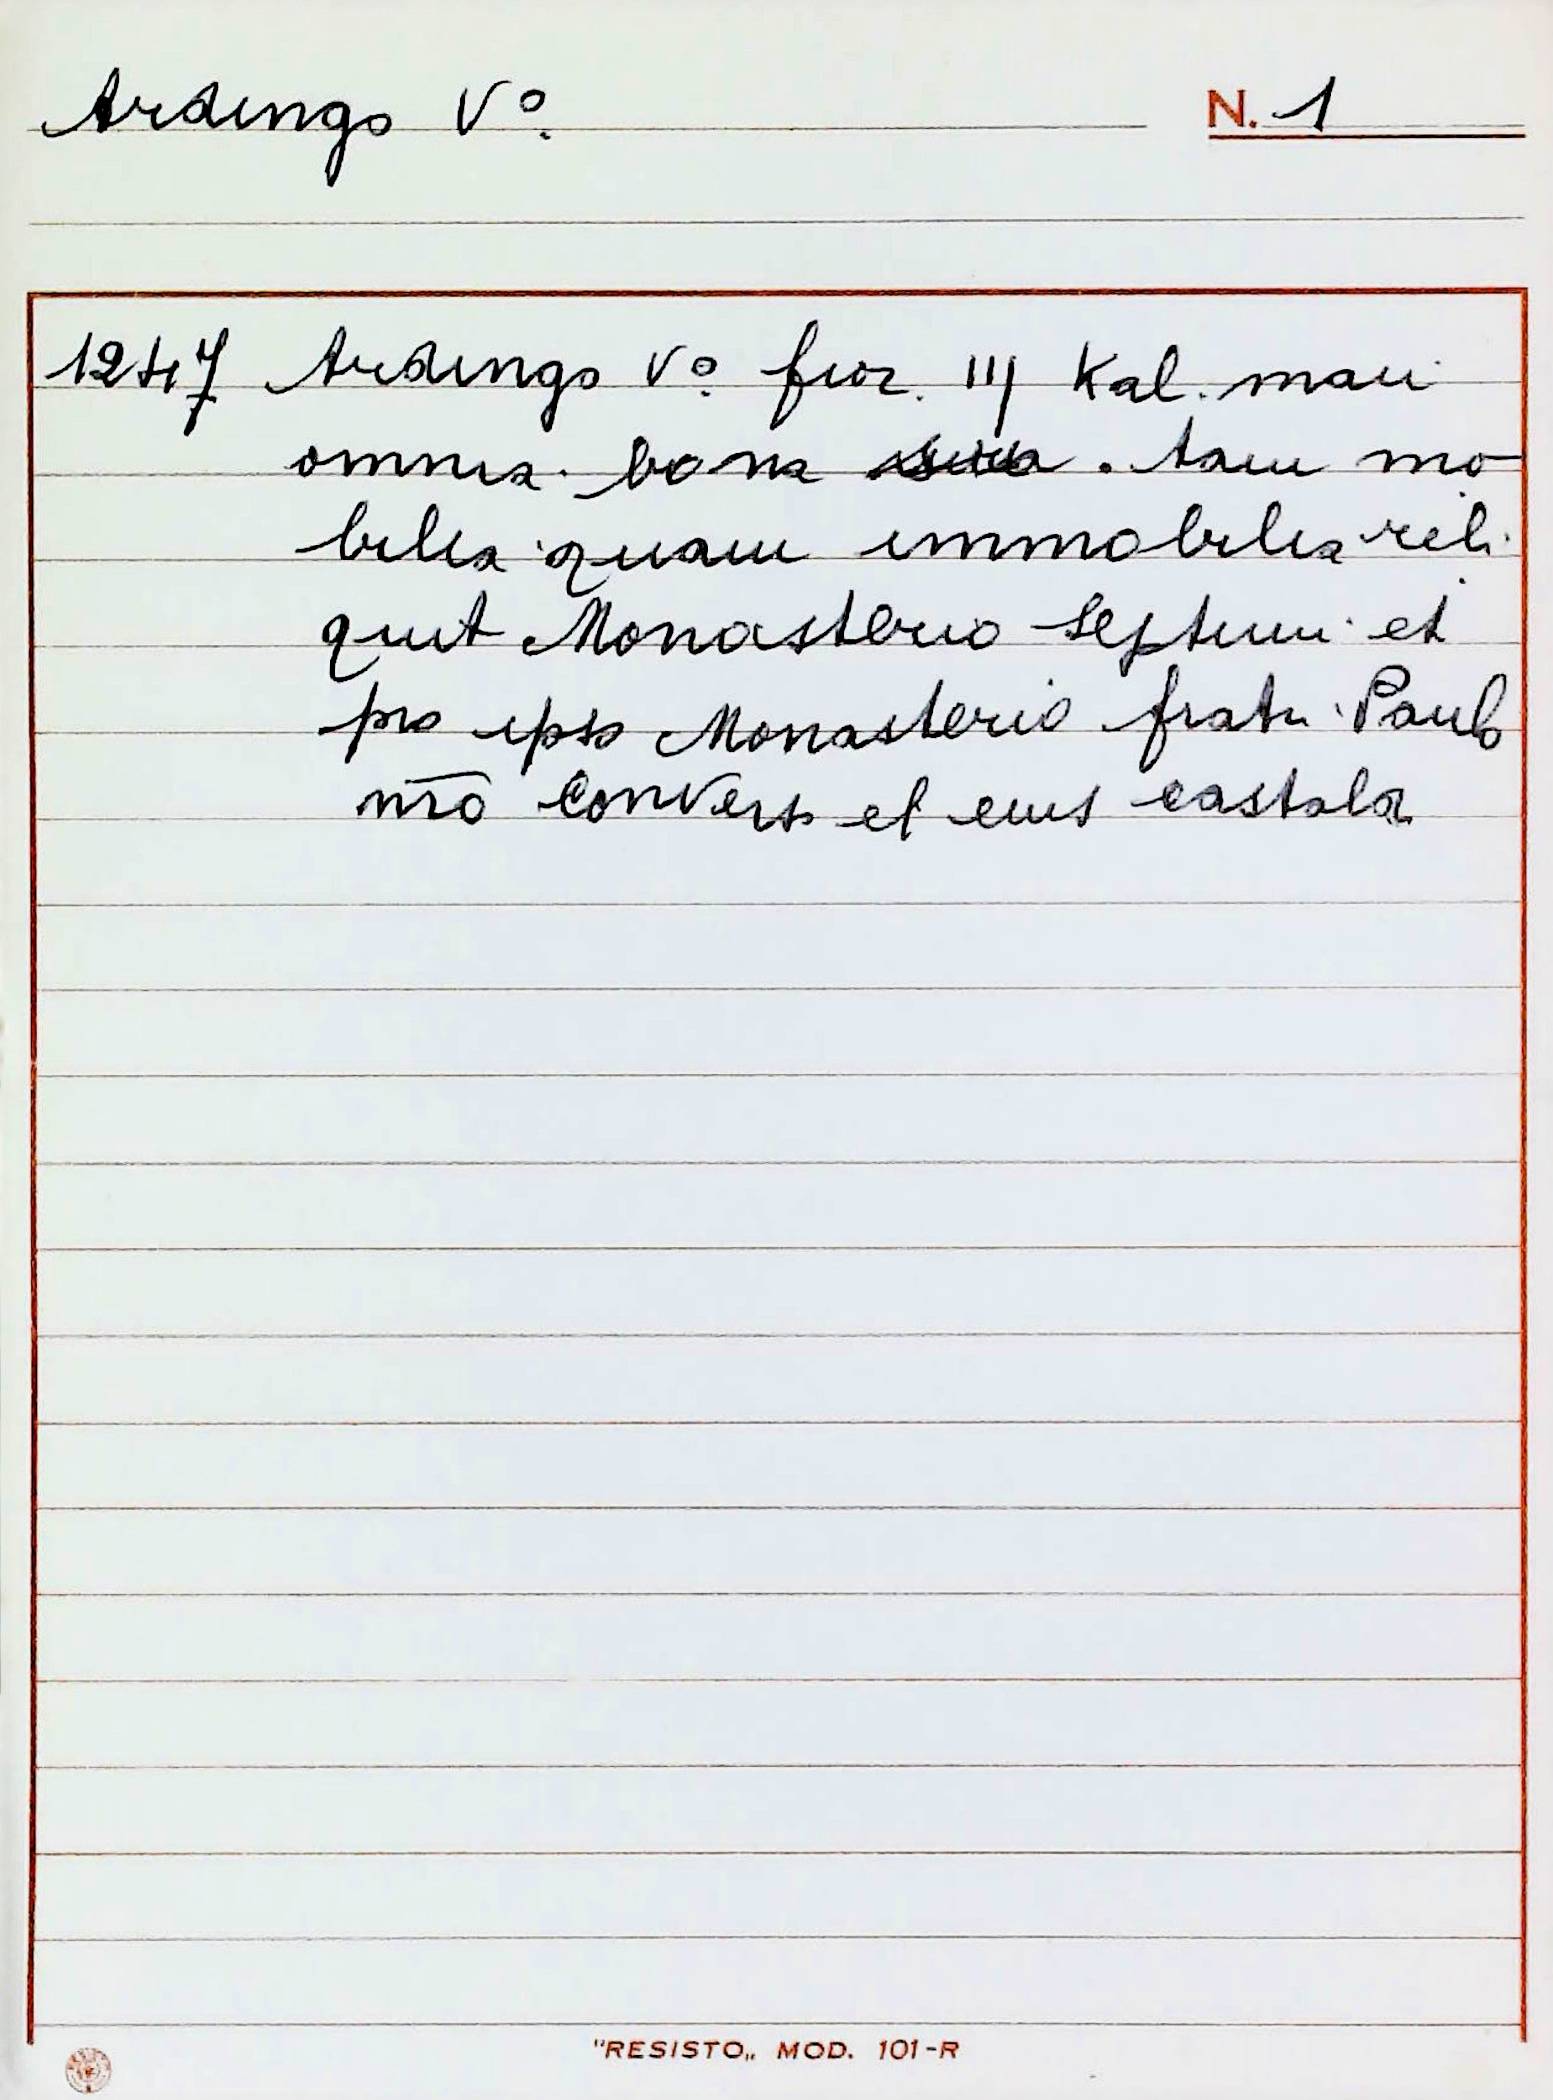 Ardingo Vº.
N. 1
1247 Ardingo Vº. fior. III Kal. maii
omnia bona sua. tam mo
bilia quam immobilia reli
quit Monasterio Septimi et
pro ipso Monasterio fratri Paulo
nr̄o converso et eius castala
"RESISTO„ MOD. 101-R